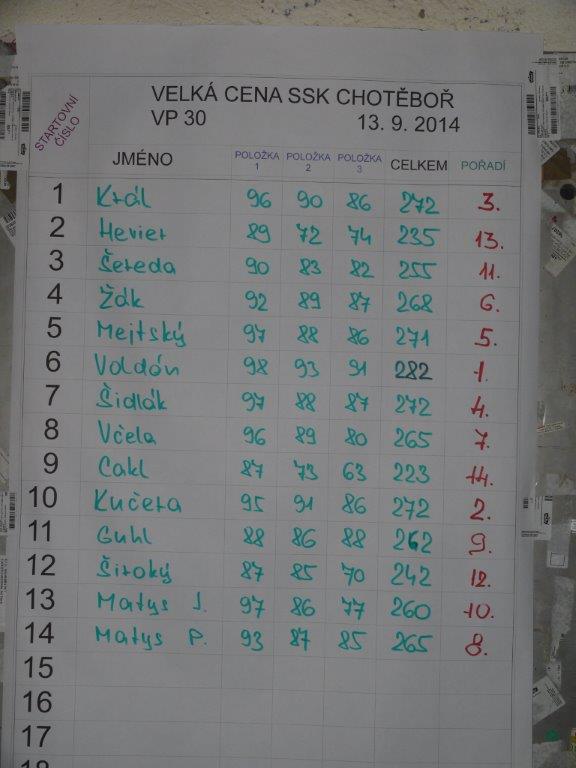 VELKÁ CENA SSK CHOTĚBOŘ
VP 30 13. 9. 2014
STARTOVNÍ ČÍSLO JMÉNO POLOŽKA 1 POLOŽKA 2 POLOŽKA 3 CELKEM POŘADÍ
1 Král 96 90 86 272 3.
2 Hevier 89 72 74 235 13.
3 Šereda 90 83 82 255 11.
4 Žák 92 89 87 268 6.
5 Mejtský 97 88 86 271 5.
6 Voldán 98 93 91 282 1.
7 Šidlák 97 88 87 272 4.
8 Včela 96 89 80 265 7.
9 Cakl 87 73 63 223 14.
10 Kučera 95 91 86 272 2.
11 Guhl 88 86 88 262 9.
12 Široký 87 85 70 242 12.
13 Matys J. 97 86 77 260 10.
14 Matys P. 93 87 85 265 8.
15
16
17
18